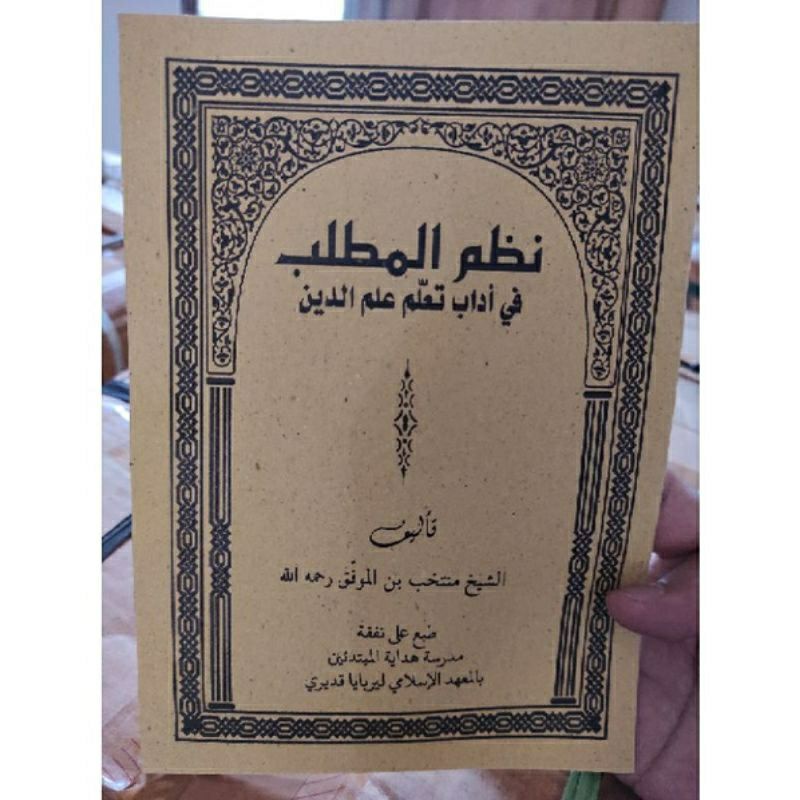 نظم المطلب
في أداب تعلّم علم الدين
تأليف
الشيخ منتخب بن الموفّق رحمه الله
طبع على نفقة
مدرسة هداية المبتدئين
بالمعهد الإسلامي ليربايا قديري